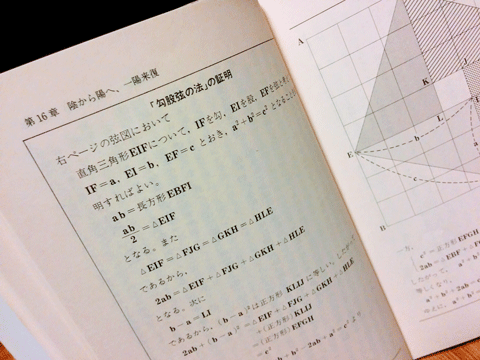 第16章 陰から陽へ、一陽来復
「勾股弦の法」の証明
右ページの弦図において
直角三角形EIFについて，IFを勾，EIを股，EFを弦と
IF＝a，EI＝b，EF＝c とおき，a²＋b²＝c² となることを
明すればよい。
ab＝長方形EBFI
ab/2＝△EIF
となる。また
△EIF＝△FJG＝△GKH＝△HLE
であるから，
2ab＝△EIF＋△FJG＋△GKH＋△HLE
となる。次に
b－a＝LI
であるから，(b－a)²は正方形KLIJに等しい。したがって
2ab＋(b－a)²＝△EIF＋△FJG＋△GKH＋△HLE
＋(正方形)KLIJ
＝(正方形)EFGH
A
K
J
L
b
E
B
一方，
c²＝正方形EFGH